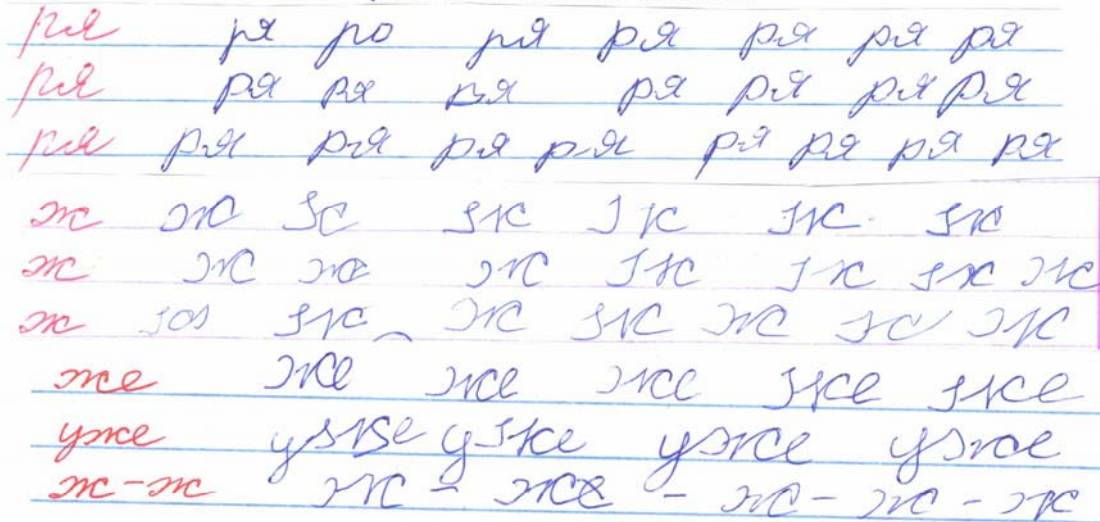 ря ря ро ря ря ря ря ря
ря ря ря вя ря ря ря ря
ря ря ря ря р-я ря ря ря ря
ж ж ж ж ж ж
ж ж ж ж ж ж ж ж
ж ж ж ж ж ж
же же же же же же
уже уже уже уже уже
ж-ж ж - же - ж - ж - ж